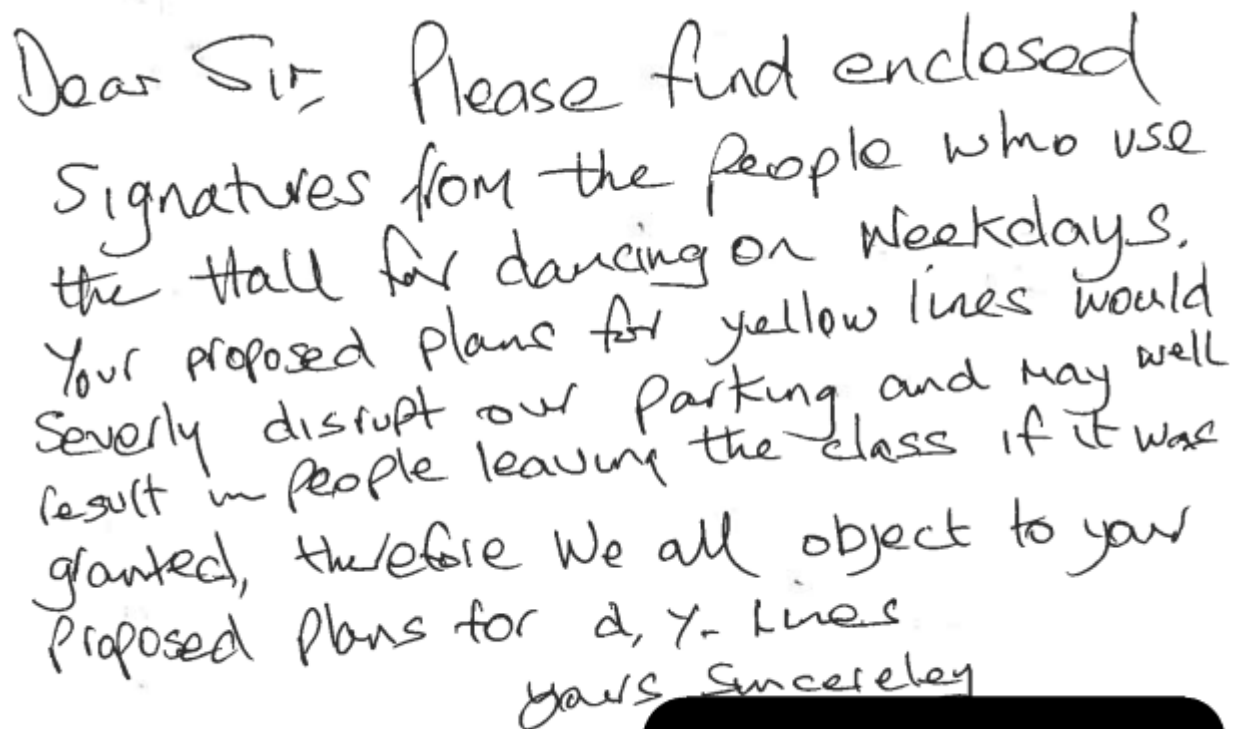 Dear Sir, Please find enclosed
Signatures from the people who use
the Hall for dancing on Weekdays.
Your proposed plans for yellow lines would
Severly disrupt our parking and may well
result in people leaving the class if it was
granted, therefore We all object to your
Proposed Plans for d, y- Lines
yours Sincereley